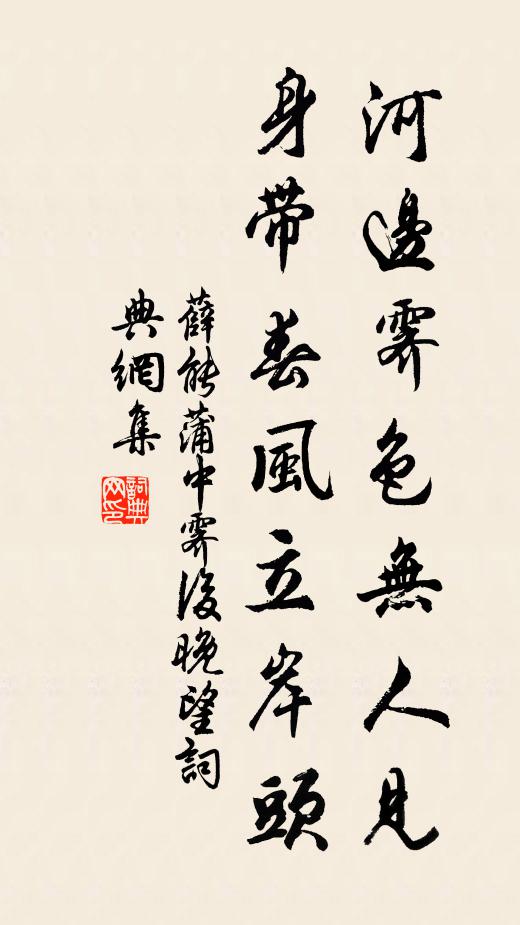 河邊霽色無人見
身帶春風立岸頭
薛能蒲中霽後晚望詞
典網集
詞典
网印